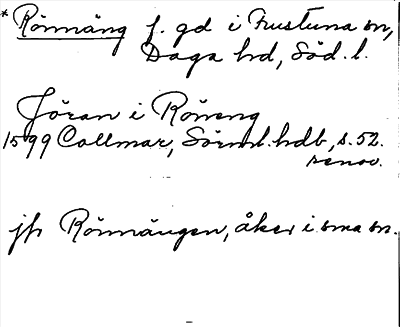 * Rönnäng f. gd i Frustuna sn,
Daga hd, Söd. l.
Jöran i Röneng
1599 Callmar, Sörml. hdb, s. 52.
renov.
jfr Rönnängen, åker i sma sn.